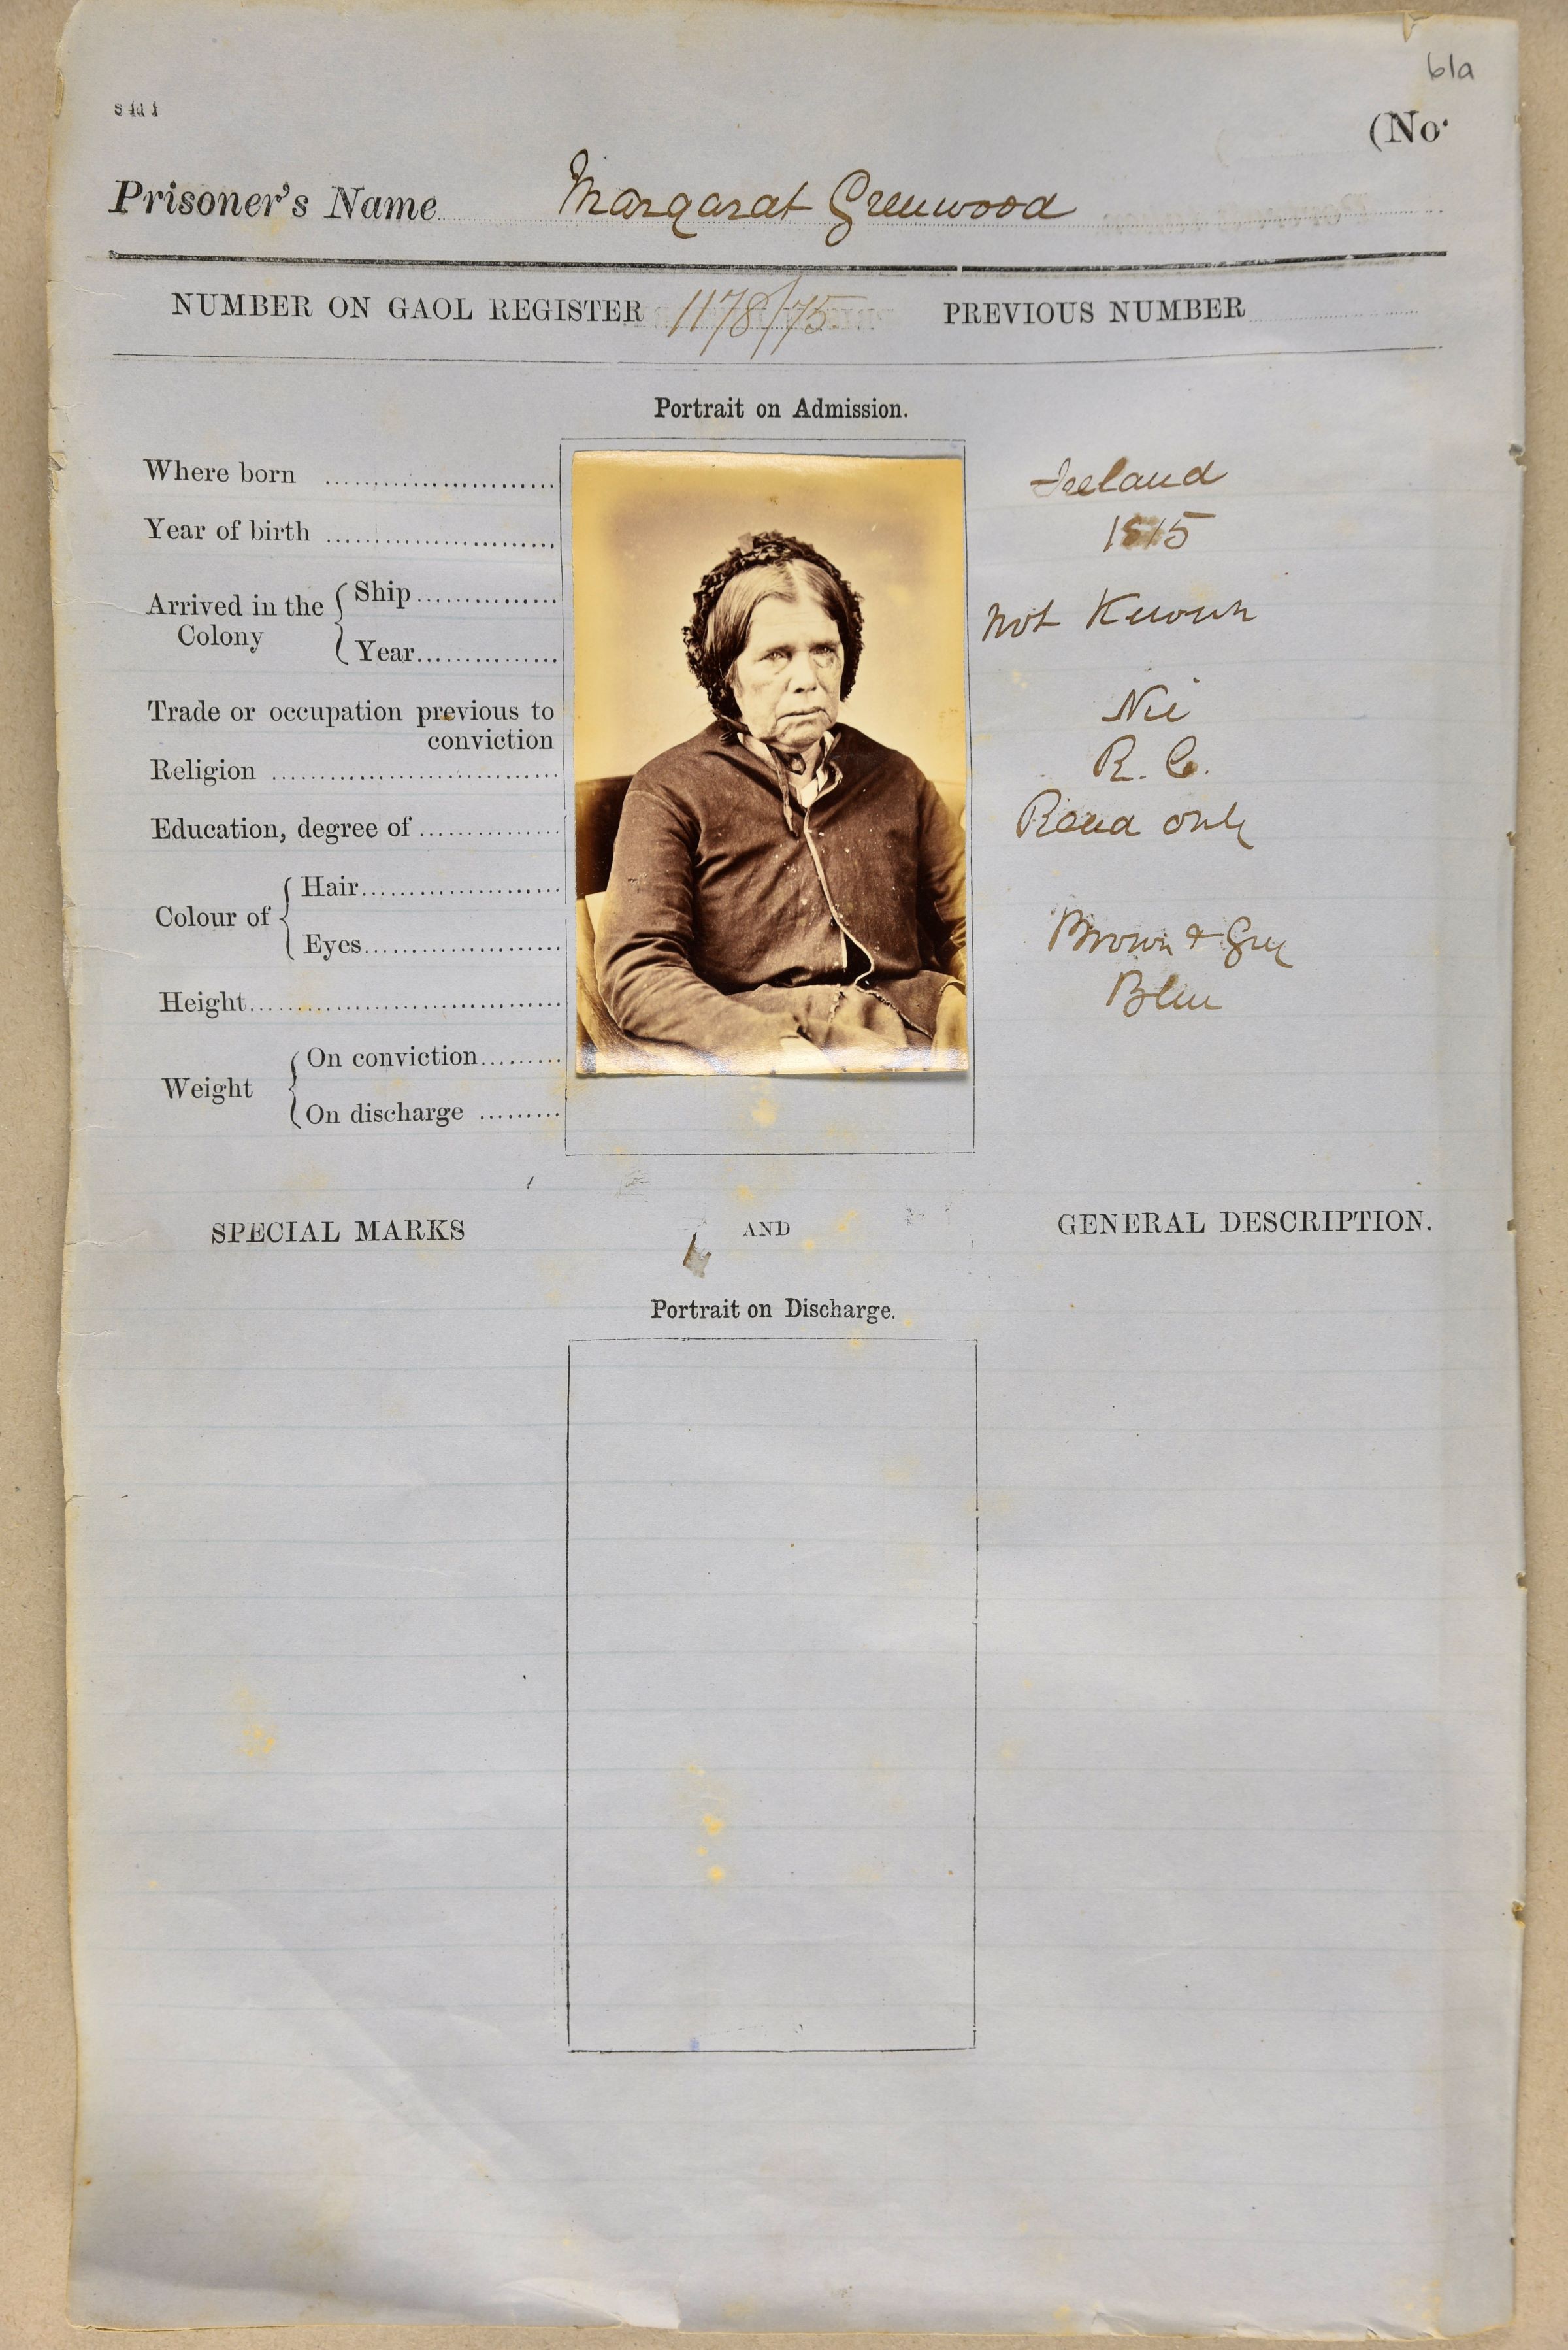 61a
(No.
Prisoner's Name Margarat Greenwood
NUMBER ON GAOL REGISTER 1178/75 PREVIOUS NUMBER
Portrait on Admission.
Where born Ireland
Year of birth 1815
Arrived in the Colony Ship
Year
not Known
Trade or occupation previous to
conviction Nil
Religion R. C.
Education, degree of Read only
Colour of Hair Brown & Grey
Eyes Blue
Height
Weight On conviction
On discharge
SPECIAL MARKS AND GENERAL DESCRIPTION.
Portrait on Discharge.